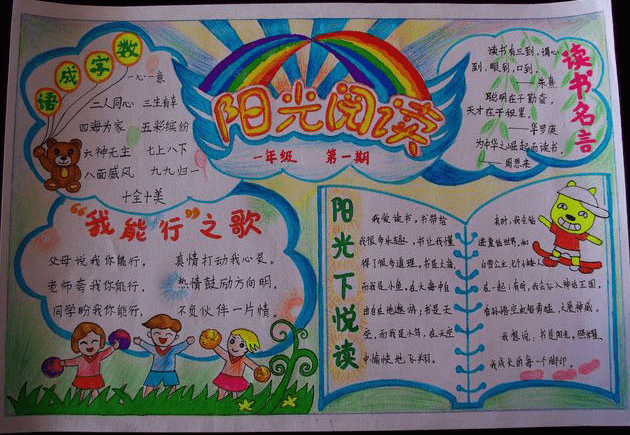 数字成语
一心一意
二人同心 三生有幸
四海为家 五彩缤纷
六神无主 七上八下
八面威风 九九归一
十全十美
阳光阅读
一年级 第一期
读书名言
读书有三到,谓心
到,眼到,口到。
——朱熹
聪明在于勤奋,
天才在于积累。
——华罗庚
为中华之崛起而读书。
——周恩来
“我能行”之歌
父母说我你能行, 真情打动我心灵。
老师夸我你能行, 热情鼓励方向明。
同学盼我你能行, 不负伙伴一片情。
阳光下悦读
我爱读书,书带给
我很多乐趣,书让我懂
得了很多道理。书是大海
而我是小鱼,在大海中自
由自在地遨游,书是天
空,而我是小鸟,在天空
中愉快地飞翔。
有时,我会钻
进童话世界,和
白雪公主七个小矮人
在一起;有时,我会 入神话王国,
看孙悟空 智勇猛,大展神威。
我想说,书是阳光,照耀
我成长的每一个脚印。